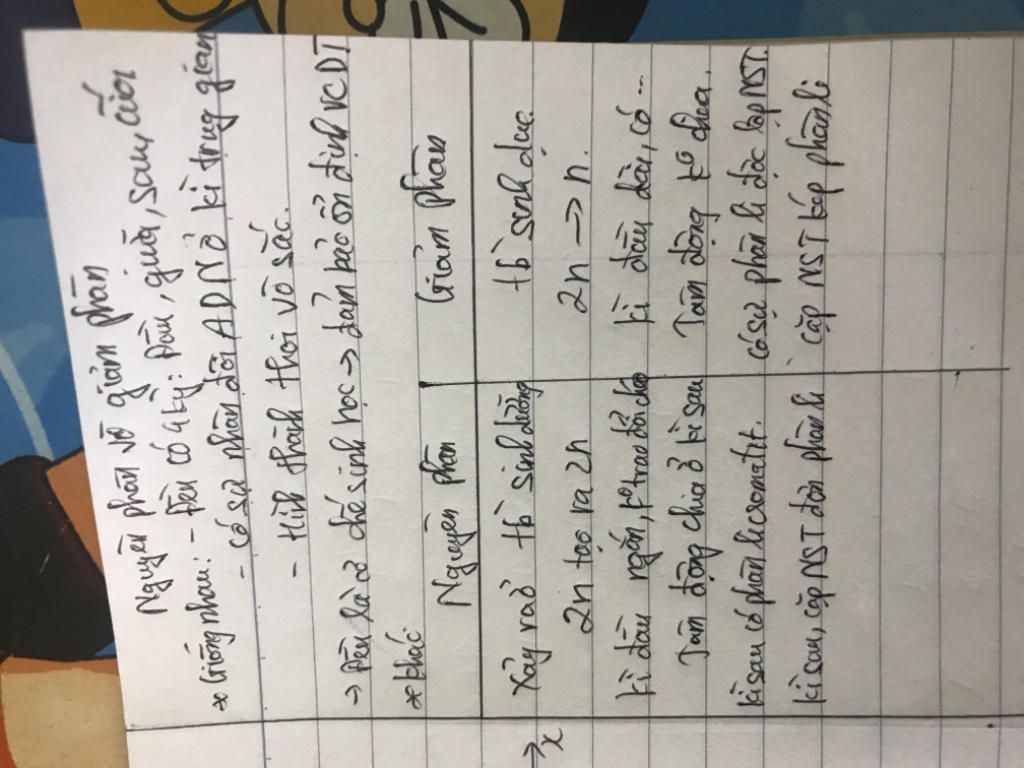 Nguyên phân và giảm phân
* Giống nhau: - Đều có 4 kỳ: Đầu, giữa, sau, cuối
- Có sự nhân đôi ADN ở kì trung gian
- Hình thành thoi vô sắc.
→ Đều là cơ chế sinh học → đảm bảo ổn định VCDT
* Khác:
Nguyên phân Giảm phân
Xảy ra ở tb sinh dưỡng tb sinh dục
2n tạo ra 2n 2n → n.
kì đầu ngắn, ko trao đổi chéo kì đầu dài, có ...
Tâm động chia ở kì sau Tâm động ko chia.
kì sau có phân li cromatit. có sự phân li độc lập NST.
kì sau, cặp NST đơn phân li cặp NST kép phân li